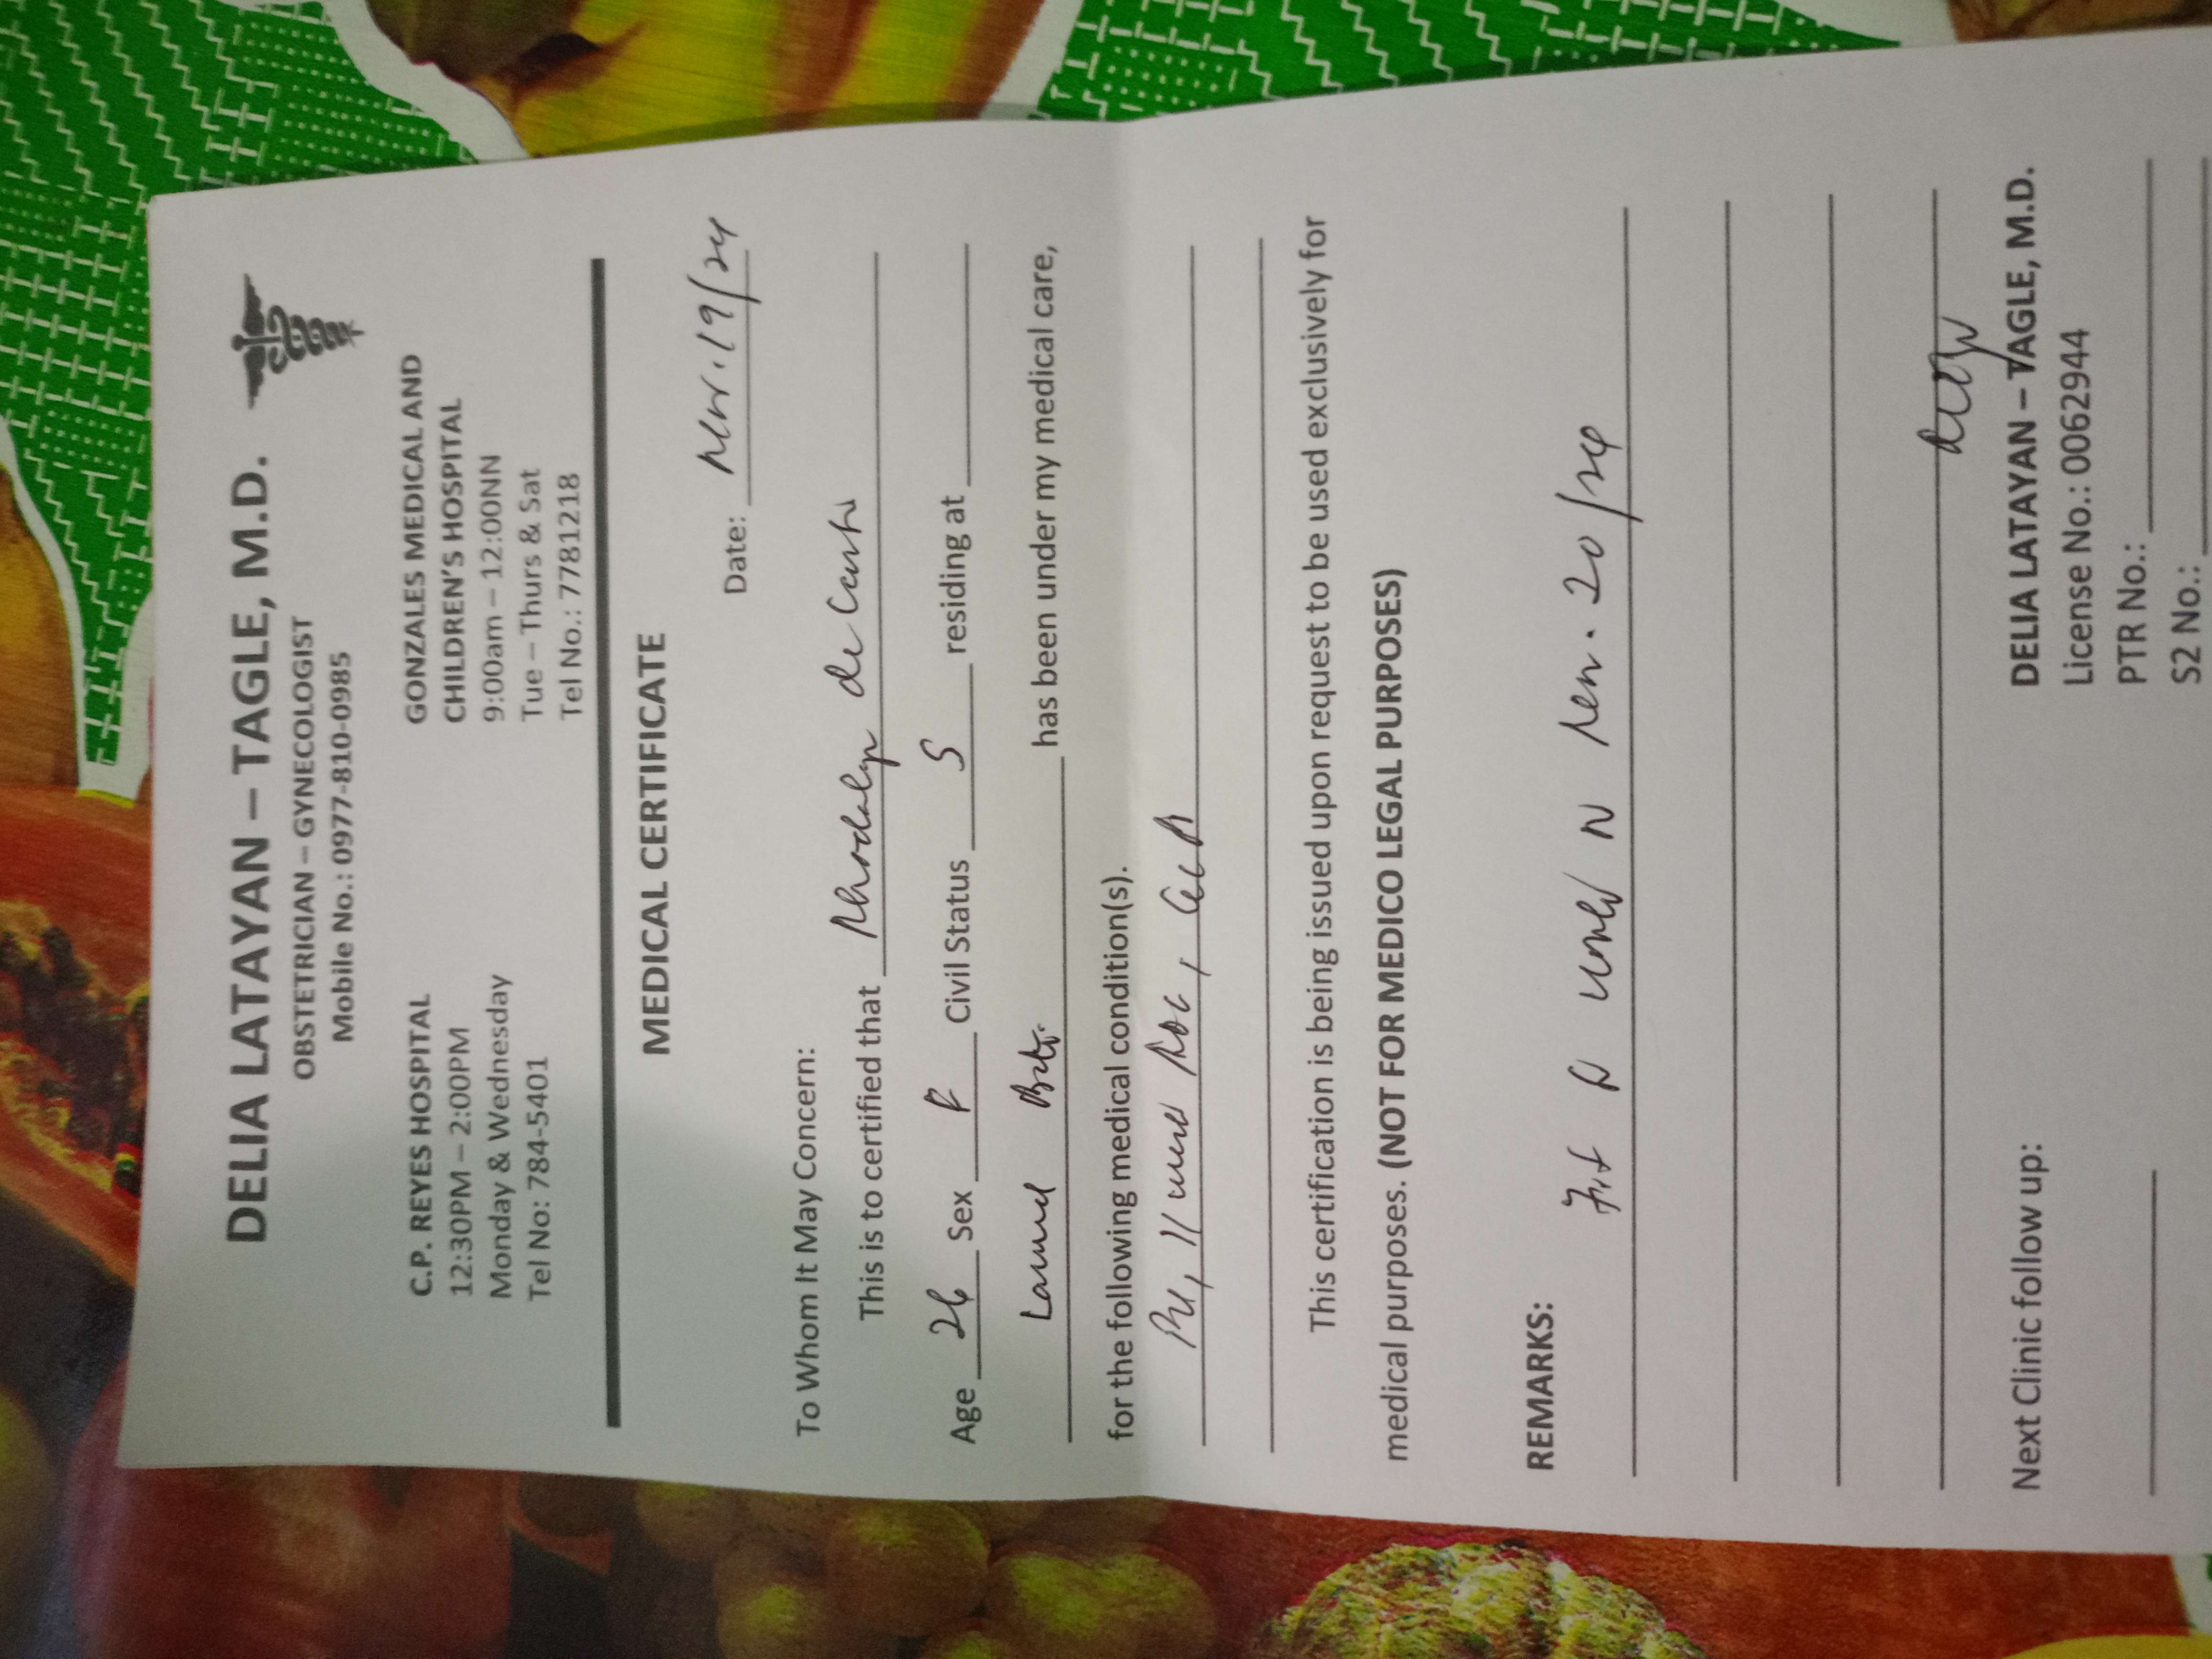 DELIA LATAYAN – TAGLE, M.D.
OBSTETRICIAN – GYNECOLOGIST
Mobile No.: 0977-810-0985
C.P. REYES HOSPITAL
12:30PM – 2:00PM
Monday & Wednesday
Tel No: 784-5401
GONZALES MEDICAL AND
CHILDREN'S HOSPITAL
9:00am – 12:00NN
Tue – Thurs & Sat
Tel No.: 7781218
MEDICAL CERTIFICATE
Date: 19/24
To Whom It May Concern:
This is to certified that Rhodalyn de Castro
Age 26 Sex F Civil Status S residing at
has been under my medical care,
for the following medical condition(s).
PU, 11 weeks AOG,
This certification is being issued upon request to be used exclusively for
medical purposes. (NOT FOR MEDICO LEGAL PURPOSES)
REMARKS:
Fit 20/24
DELIA LATAYAN – TAGLE, M.D.
License No.: 0062944
PTR No.:
S2 No.:
Next Clinic follow up: